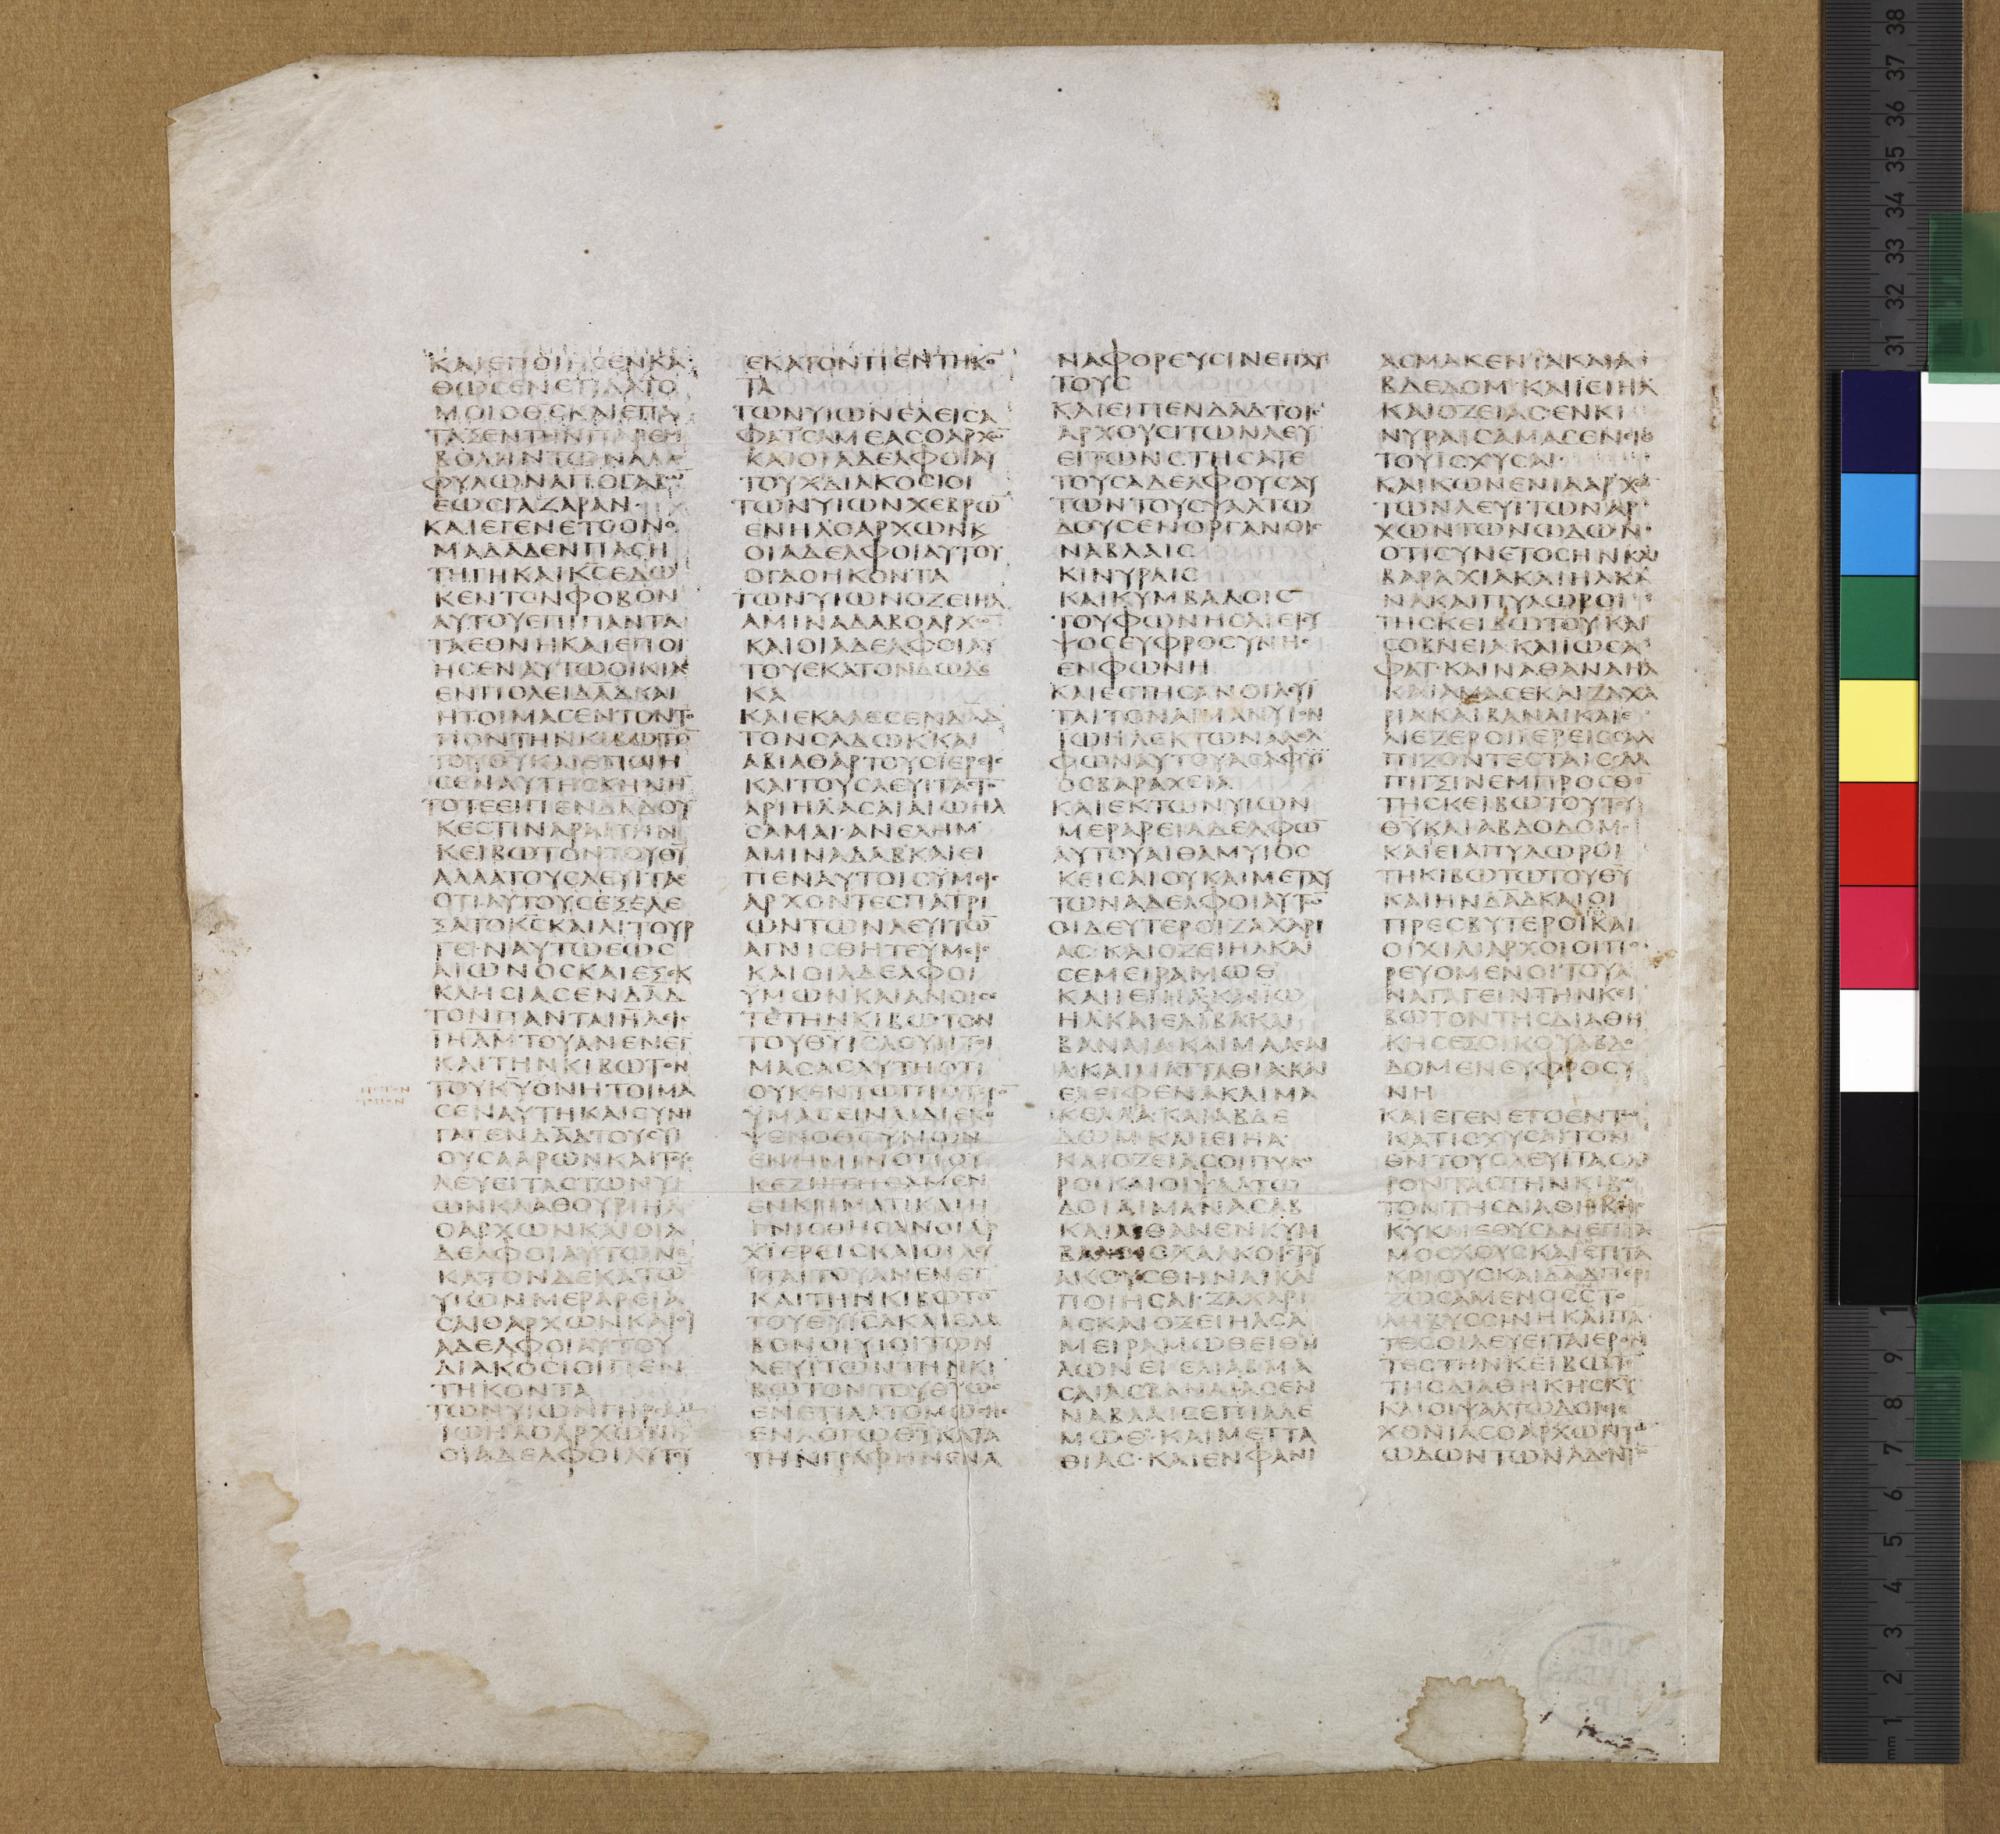 ΚΑΙΕΠΟΙΗϹΕΝΚΑ
ΘΩϹΕΝΕΤΙΛΑΤΟ
ΜΟΙΟΘϹΚΑΙΕΠΑ
ΤΑΞΕΝΤΗΝΠΑΡΕΜ
ΒΟΛΗΝΤΩΝΑΛΛΟ
ΦΥΛΩΝΑΠΟΓΑΒ
ΕΩϹΓΑΖΑΡΑΝ
ΚΑΙΕΓΕΝΕΤΟΟΝΟ
ΜΑΔΑΔΕΝΠΑϹΗ
ΤΗΓΗΚΑΙΚϹΕΔΩ
ΚΕΝΤΟΝΦΟΒΟΝ
ΑΥΤΟΥΕΠΙΠΑΝΤΑ
ΤΑΕΘΝΗΚΑΙΕΠΟΙ
ΗϹΕΝΑΥΤΩΟΙΚΙΑϹ
ΕΝΠΟΛΕΙΔΑΔΚΑΙ
ΗΤΟΙΜΑϹΕΝΤΟΝΤΟ
ΠΟΝΤΗΝΚΙΒΩΤΟ
ΤΟΥΘΥΚΑΙΕΠΟΙΗ
ϹΕΝΑΥΤΗϹΚΗΝΗ
ΤΟΤΕΕΙΠΕΝΔΑΔΟΥ
ΚΕϹΤΙΝΑΡΑΙΤΗΝ
ΚΕΙΒΩΤΟΝΤΟΥΘΥ
ΑΛΛΑΤΟΥϹΛΕΥΙΤΑϹ
ΟΤΙΑΥΤΟΥϹΕΞΕΛΕ
ΞΑΤΟΚϹΚΑΙΛΙΤΟΥΡ
ΓΕΙΝΑΥΤΩΕΩϹ
ΑΙΩΝΟϹΚΑΙΕΞΕΚ
ΚΛΗϹΙΑϹΕΝΔΑΔ
ΤΟΝΠΑΝΤΑΙΗΛΕΙ
ΙΗΛΜΤΟΥΑΝΕΝΕΓ
ΚΑΙΤΗΝΚΙΒΩΤΟΝ
ΤΟΥΚΥΟΝΗΤΟΙΜΑ
ϹΕΝΑΥΤΗΚΑΙϹΥΝΗ
ΓΑΓΕΝΔΑΔΤΟΥϹΥΙ
ΟΥϹΑΑΡΩΝΚΑΙΤΟΥϹ
ΛΕΥΕΙΤΑϹΤΩΝΥΙ
ΩΝΚΑΑΘΟΥΡΙΗΛ
ΟΑΡΧΩΝΚΑΙΟΙΑ
ΔΕΛΦΟΙΑΥΤΩΝΕ
ΚΑΤΟΝΔΕΚΑΤΩ
ΥΙΩΝΜΕΡΑΡΕΙΑ
ϹΑΙΘΑΡΧΩΝΚΑΙΟΙ
ΑΔΕΛΦΟΙΑΥΤΟΥ
ΔΙΑΚΟϹΙΟΙΠΕΝ
ΤΗΚΟΝΤΑ
ΤΩΝΥΙΩΝΓΗΡϹΑΜ
ΙΩΗΛΟΑΡΧΩΝ
ΟΙΑΔΕΛΦΟΙΑΥΤΟΥ
ΕΚΑΤΟΝΠΕΝΤΗΚΟ
ΤΑ
ΤΩΝΥΙΩΝΕΛΕΙϹΑ
ΦΑΤϹΑΜΕΑϹΟΑΡΧΩ
ΚΑΙΟΙΑΔΕΛΦΟΙΑΥ
ΤΟΥΧΔΙΑΚΟϹΙΟΙ
ΤΩΝΥΙΩΝΧΕΒΡΩ
ΕΝΗΛΟΑΡΧΩΝΚ
ΟΙΑΔΕΛΦΟΙΑΥΤΟΥ
ΟΓΔΟΗΚΟΝΤΑ
ΤΩΝΥΙΩΝΟΖΕΙΗΛ
ΑΜΙΝΑΔΑΒΟΑΡΧΩ
ΚΑΙΟΙΑΔΕΛΦΟΙΑΥ
ΤΟΥΕΚΑΤΟΝΔΩΔΕ
ΚΑ
ΚΑΙΕΚΑΛΕϹΕΝΔΑΔ
ΤΟΝϹΑΔΩΚΚΑΙ
ΑΒΙΑΘΑΡΤΟΥϹΙΕΡΕΙϹ
ΚΑΙΤΟΥϹΛΕΥΙΤΑϹΤΟ
ΑΡΙΗΛΑϹΑΙΑΙΩΗΛ
ϹΑΜΑΙΑΝΕΛΗΜ
ΑΜΙΝΑΔΑΒΚΑΙΕΙ
ΠΕΝΑΥΤΟΙϹΥΜΕΙϹ
ΑΡΧΟΝΤΕϹΠΑΤΡΙ
ΩΝΤΩΝΛΕΥΙΤΩ
ΑΓΝΙϹΘΗΤΕΥΜΕΙϹ
ΚΑΙΟΙΑΔΕΛΦΟΙ
ΥΜΩΝΚΑΙΑΝΟΙϹΕ
ΤΕΤΗΝΚΙΒΩΤΟΝ
ΤΟΥΘΥΙϹΛΟΥΗΤΟΙ
ΜΑϹΑϹΑΥΤΗΟΤΙ
ΟΥΚΕΝΤΩΠΡΟΤΕΡΟ
ΥΜΑϹΕΙΝΑΙΔΙΕΚΟ
ΨΕΝΟΘϹΥΜΩΝ
ΕΝΗΜΙΝΟΤΙΟΥ
ΚΕΖΗΤΗϹΑΜΕΝ
ΕΝΚΡΙΜΑΤΙΚΑΙΗ
ΓΝΙϹΘΗϹΑΝΟΙΑΡ
ΧΙΕΡΕΙϹΚΑΙΟΙΛΕΥ
ΙΤΑΙΤΟΥΑΝΕΝΕΓ
ΚΑΙΤΗΝΚΙΒΩΤΟ
ΤΟΥΘΥΙϹΛΚΑΙΕΛΑ
ΒΟΝΟΙΥΙΟΙΤΩΝ
ΛΕΥΙΤΩΝΤΗΝΚΙ
ΒΩΤΟΝΤΟΥΘΥΩϹ
ΕΝΕΤΙΛΑΤΟΜΩΥϹΗϹ
ΕΝΛΟΓΩΘΥΚΑΤΑ
ΤΗΝΓΡΑΦΗΝΕΝΑ
ΝΑΦΟΡΕΥϹΙΝΕΠΑΥ
ΤΟΥϹ
ΚΑΙΕΙΠΕΝΔΑΔΤΟΙϹ
ΑΡΧΟΥϹΙΤΩΝΛΕΥ
ΕΙΤΩΝϹΤΗϹΑΤΕ
ΤΟΥϹΑΔΕΛΦΟΥϹΑΥ
ΤΩΝΤΟΥϹΨΑΛΤΩ
ΔΟΥϹΕΝΟΡΓΑΝΟΙϹ
ΝΑΒΛΑΙϹ
ΚΙΝΥΡΑΙϹ
ΚΑΙΚΥΜΒΑΛΟΙϹ
ΤΟΥΦΩΝΗϹΑΙΕΙϹΥ
ΨΟϹΕΥΦΡΟϹΥΝΗϹ
ΕΝΦΩΝΗ
ΚΑΙΕϹΤΗϹΑΝΟΙΛΕΥΙ
ΤΑΙΤΟΝΑΙΜΑΝΥΙΟΝ
ΙΩΗΛΕΚΤΩΝΑΔΕΛ
ΦΩΝΑΥΤΟΥΑϹΑΦΥΙ
ΟϹΒΑΡΑΧΕΙΑ
ΚΑΙΕΚΤΩΝΥΙΩΝ
ΜΕΡΑΡΕΙΑΔΕΛΦΩ
ΑΥΤΟΥΑΙΘΑΜΥΙΟϹ
ΚΕΙϹΑΙΟΥΚΑΙΜΕΤΑΥ
ΤΩΝΑΔΕΛΦΟΙΑΥΤΩ
ΟΙΔΕΥΤΕΡΟΙΖΑΧΑΡΙ
ΑϹΚΑΙΟΖΕΙΗΛΚΑΙ
ϹΕΜΕΙΡΑΜΩΘ
ΚΑΙΙΕΘΙΗΛΚΑΙΙΩ
ΗΛΚΑΙΕΛΙΑΒΑΚΑΙ
ΒΑΝΑΙΑΚΑΙΜΑΑϹΑΙ
ΑΚΑΙΜΑΤΤΑΘΙΑΚΑΙ
ΕΛΕΙΦΕΝΑΚΑΙΜΑ
ΚΕΛΛΑΚΑΙΑΒΔΕ
ΔΩΜΚΑΙΙΕΙΗΛ
ΚΑΙΟΖΕΙΑϹΟΙΠΥΛΩ
ΡΟΙΚΑΙΟΙΨΑΛΤΩ
ΔΟΙΑΙΜΑΝΑϹΑΒ
ΚΑΙΑΙΘΑΝΕΝΚΥΜ
ΒΑΛΟΙϹΧΑΛΚΟΙϹΤΟΥ
ΑΚΟΥϹΘΗΝΑΙΚΑΙ
ΠΟΙΗϹΑΙΖΑΧΑΡΙ
ΑϹΚΑΙΟΖΕΙΗΛϹΑ
ΜΕΙΡΑΜΩΘΕΙΘΗ
ΛΩΝΕΙΕΛΙΑΒΜΑ
ϹΑΙΑϹΒΑΝΑΙΑϹΕΝ
ΝΑΒΛΑΙϹΕΠΙΑΛΕ
ΜΩΘΚΑΙΜΕΤΤΑ
ΘΙΑϹΚΑΙΕΝΦΑΝΙ
ΑϹΜΑΚΕΝΙΑΚΑΙΑ
ΒΔΕΔΟΜΚΑΙΙΕΙΗΛ
ΚΑΙΟΖΕΙΑϹΕΝΚΙ
ΝΥΡΑΙϹΑΜΑϹΕΝΙΘ
ΤΟΥΙϹΧΥϹΑΙ
ΚΑΙΚΩΝΕΝΙΑΑΡΧΩ
ΤΩΝΛΕΥΙΤΩΝΑΡ
ΧΩΝΤΩΝΩΔΩΝ
ΟΤΙϹΥΝΕΤΟϹΗΝΚΑΙ
ΒΑΡΑΧΙΑΚΑΙΗΛΚΑ
ΝΑΚΑΙΠΥΛΩΡΟΙ
ΤΗϹΚΕΙΒΩΤΟΥΚΑΙ
ϹΟΒΝΕΙΑΚΑΙΙΩϹΑ
ΦΑΤΚΑΙΝΑΘΑΝΑΗΛ
ΚΑΙΑΜΑϹΕΚΑΙΖΑΧΑ
ΡΙΑΚΑΙΒΑΝΑΙΚΑΙΕ
ΛΙΕΖΕΡΟΙΙΕΡΕΙϹϹΑΛ
ΠΙΖΟΝΤΕϹΤΑΙϹϹΑΛ
ΠΙΓΞΙΝΕΜΠΡΟϹΘΕ
ΤΗϹΚΕΙΒΩΤΟΥΤΟΥ
ΘΥΚΑΙΑΒΔΟΔΟΜ
ΚΑΙΕΙΑΠΥΛΩΡΟΙ
ΤΗΚΙΒΩΤΩΤΟΥΘΥ
ΚΑΙΗΝΔΑΔΚΑΙΟΙ
ΠΡΕϹΒΥΤΕΡΟΙΚΑΙ
ΟΙΧΙΛΙΑΡΧΟΙΟΙΠΟ
ΡΕΥΟΜΕΝΟΙΤΟΥΑ
ΝΑΓΑΓΕΙΝΤΗΝΚΕΙ
ΒΩΤΟΝΤΗϹΔΙΑΘΗ
ΚΗϹΕΞΟΙΚΟΥΑΒΔΕ
ΔΟΜΕΝΕΥΦΡΟϹΥ
ΝΗ
ΚΑΙΕΓΕΝΕΤΟΕΝΤΩ
ΚΑΤΙϹΧΥϹΑΙΤΟΝ
ΘΝΤΟΥϹΛΕΥΙΤΑϹΑΙ
ΡΟΝΤΑϹΤΗΝΚΙΒΩ
ΤΟΝΤΗϹΔΙΑΘΗΚΗϹ
ΚΥΚΑΙΕΘΥϹΑΝΕΠΤΑ
ΜΟϹΧΟΥϹΚΑΙΕΠΤΑ
ΚΡΙΟΥϹΚΑΙΔΑΔΠΕΡΙ
ΖΩϹΑΜΕΝΟϹϹΤΟ
ΛΗΒΥϹϹΙΝΗΚΑΙΠΑ
ΤΕϹΟΙΛΕΥΕΙΤΑΙΕΡΟΝ
ΤΕϹΤΗΝΚΕΙΒΩΤΟ
ΤΗϹΔΙΑΘΗΚΗϹΚΥ
ΚΑΙΟΙΨΑΛΤΩΔΟΙΚΕ
ΧΟΝΙΑϹΟΑΡΧΩΝΤΩ
ΩΔΩΝΤΩΝΑΔΟΝΤΩ